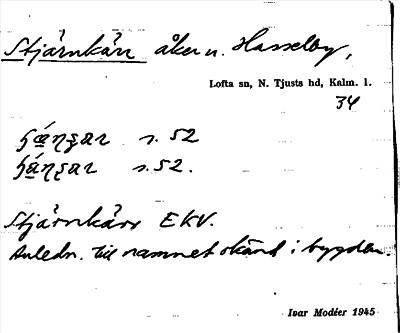 Stjärnkärr åker u. Hasselby,
Lofta sn, N. Tjusts hd, Kalm. l.
34
s. 52
s. 52.
Stjärnkärr EKV.
Anledn. till namnet okänd i bygden.
Ivar Modéer 1945